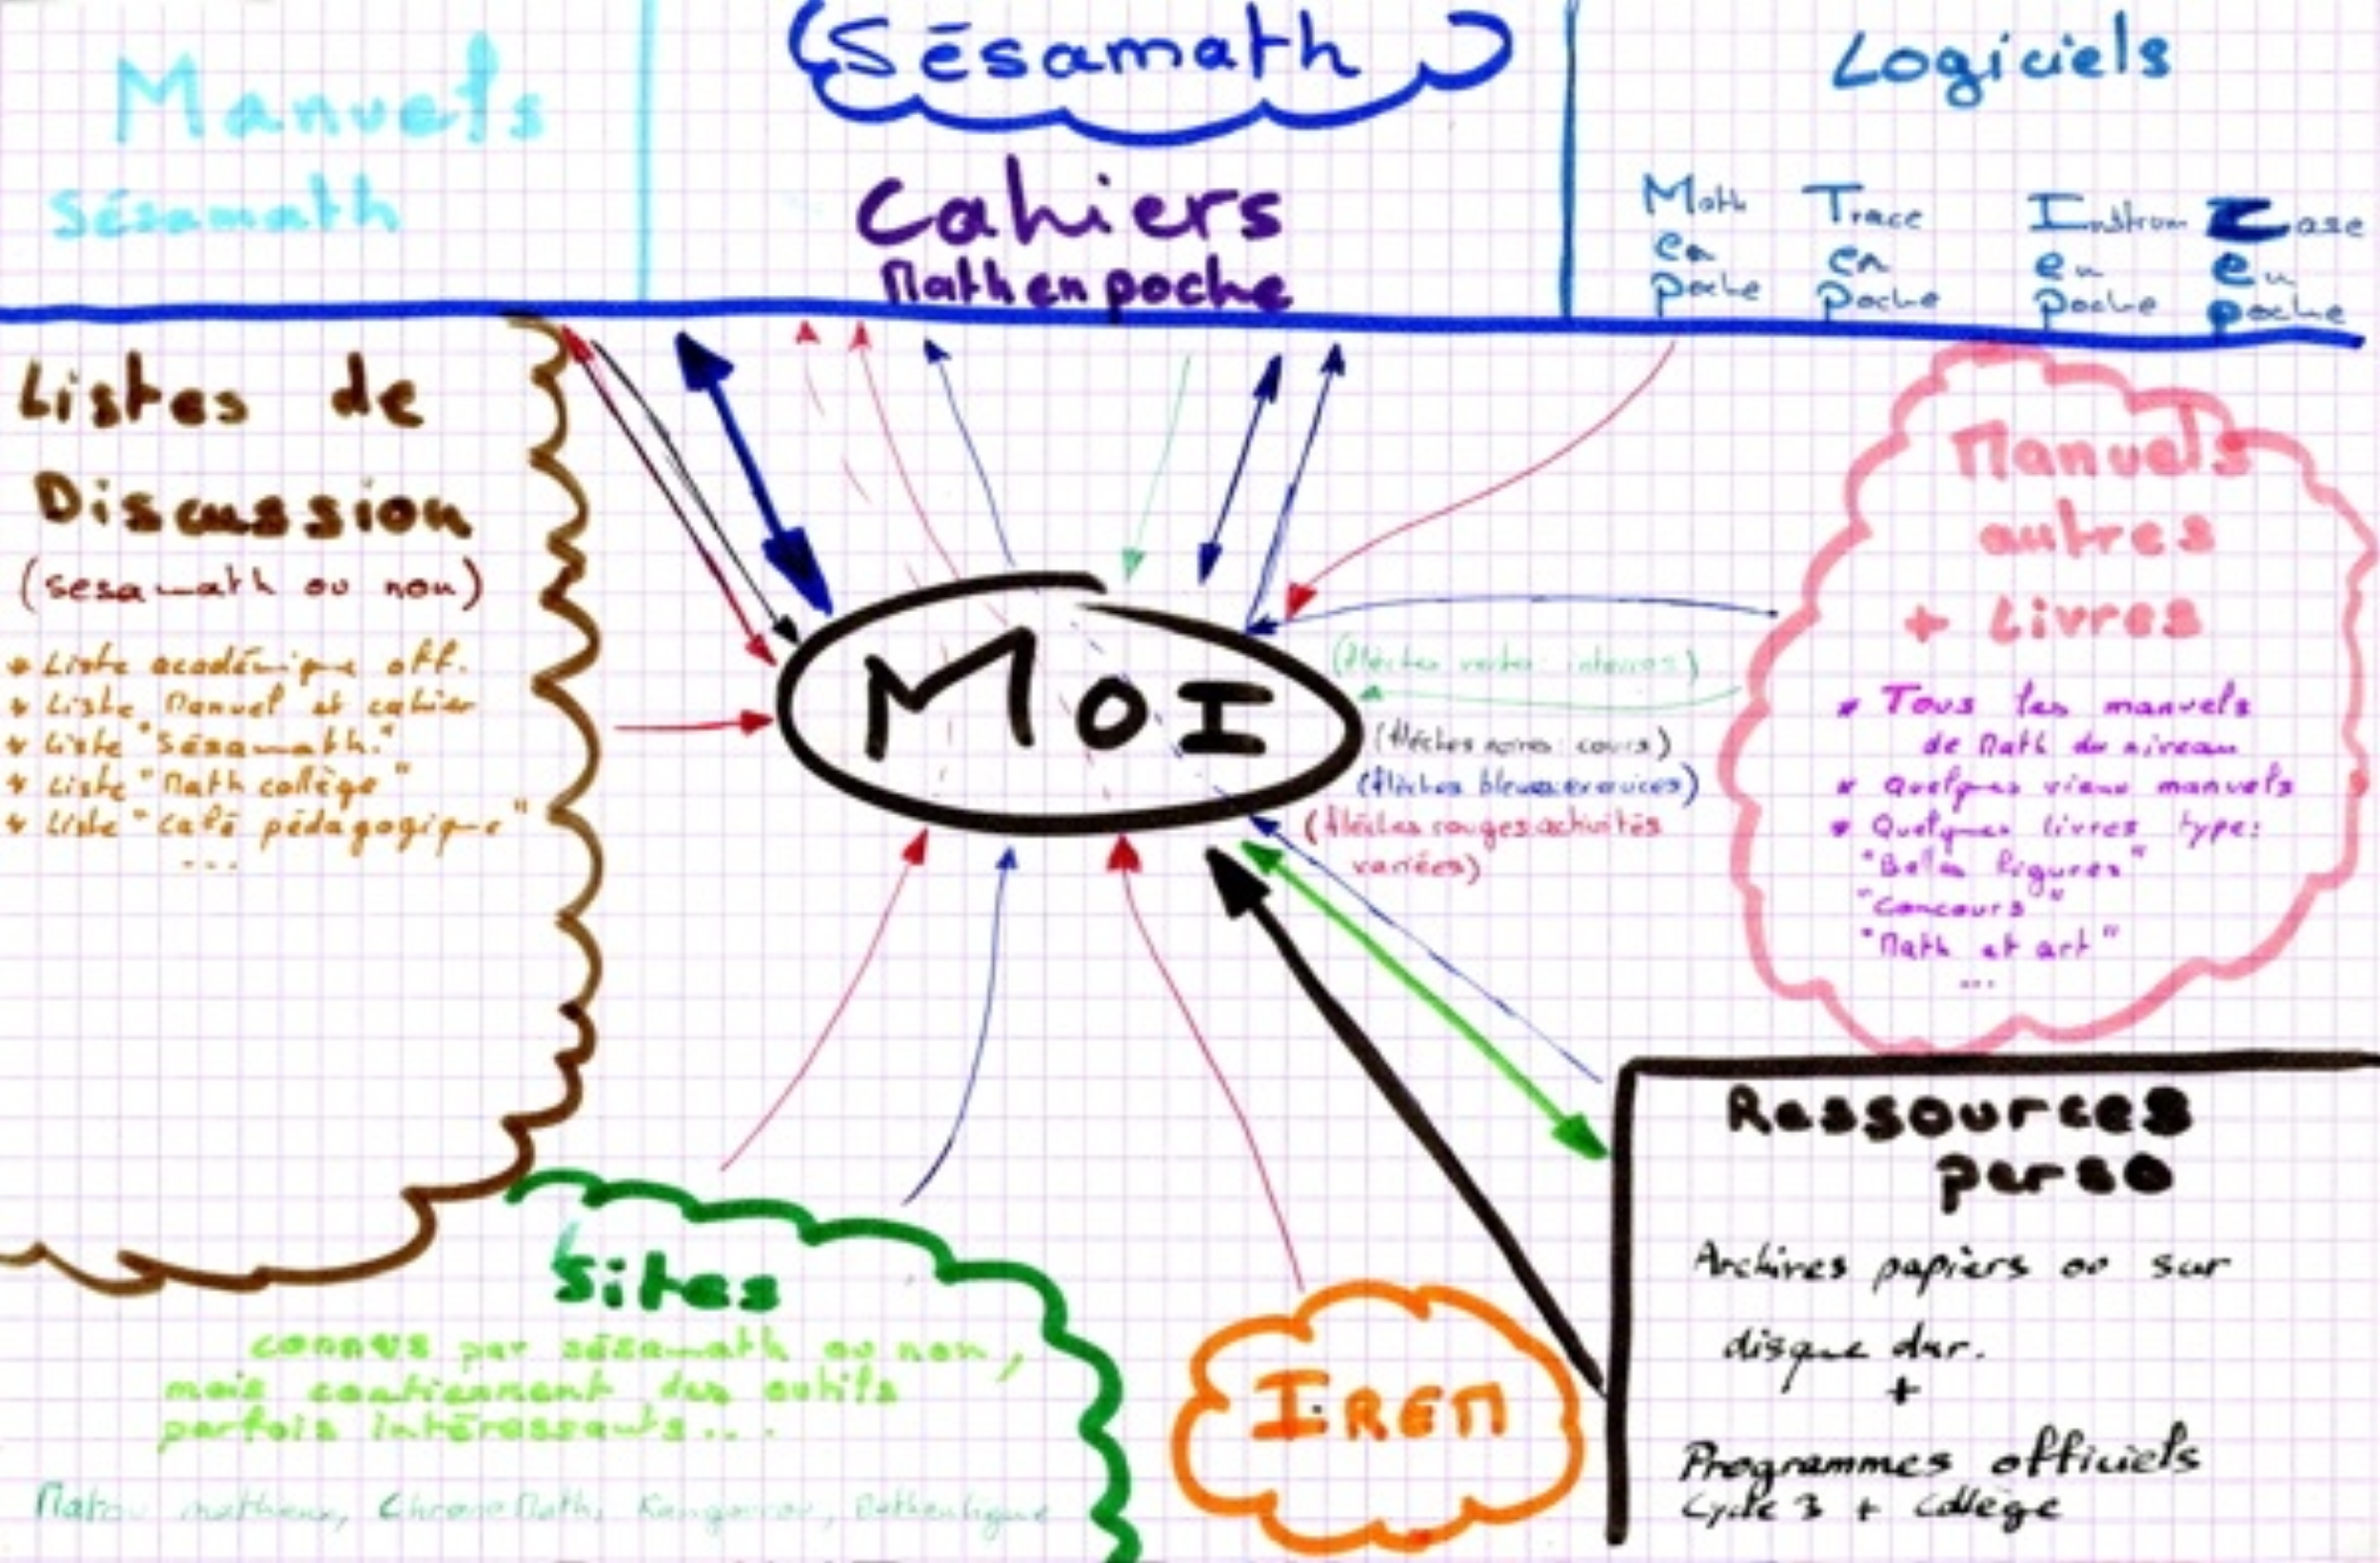 Sésamath
Manuels
Sésamath
Cahiers
Math en poche
Logiciels
Math
en
poche
Trace
en
poche
Instrum
en
poche
Case
en
poche
Listes de
Discussion
(sesamath ou non)
* Liste académique off.
* Liste Manuel et cahier
* Liste "Sésamath."
* Liste "Math collège"
* Liste "Café pédagogique"
...
MOI
(flèches vertes: interros)
(flèches noires: cours)
(flèches bleues: exercices)
(flèches rouges: activités
variées)
Manuels
autres
+ Livres
* Tous les manuels
de Math du niveau
* Quelques vieux manuels
* Quelques livres type:
"Belles figures"
"Concours"
"Math et art"
...
Ressources
perso
Archives papiers ou sur
disque dur.
+
Programmes officiels
Cycle 3 + Collège
Sites
connus par sésamath ou non,
mais contiennent des outils
parfois intéressants...
Matou matheux, ChronoMath, Kangourou,
IREM